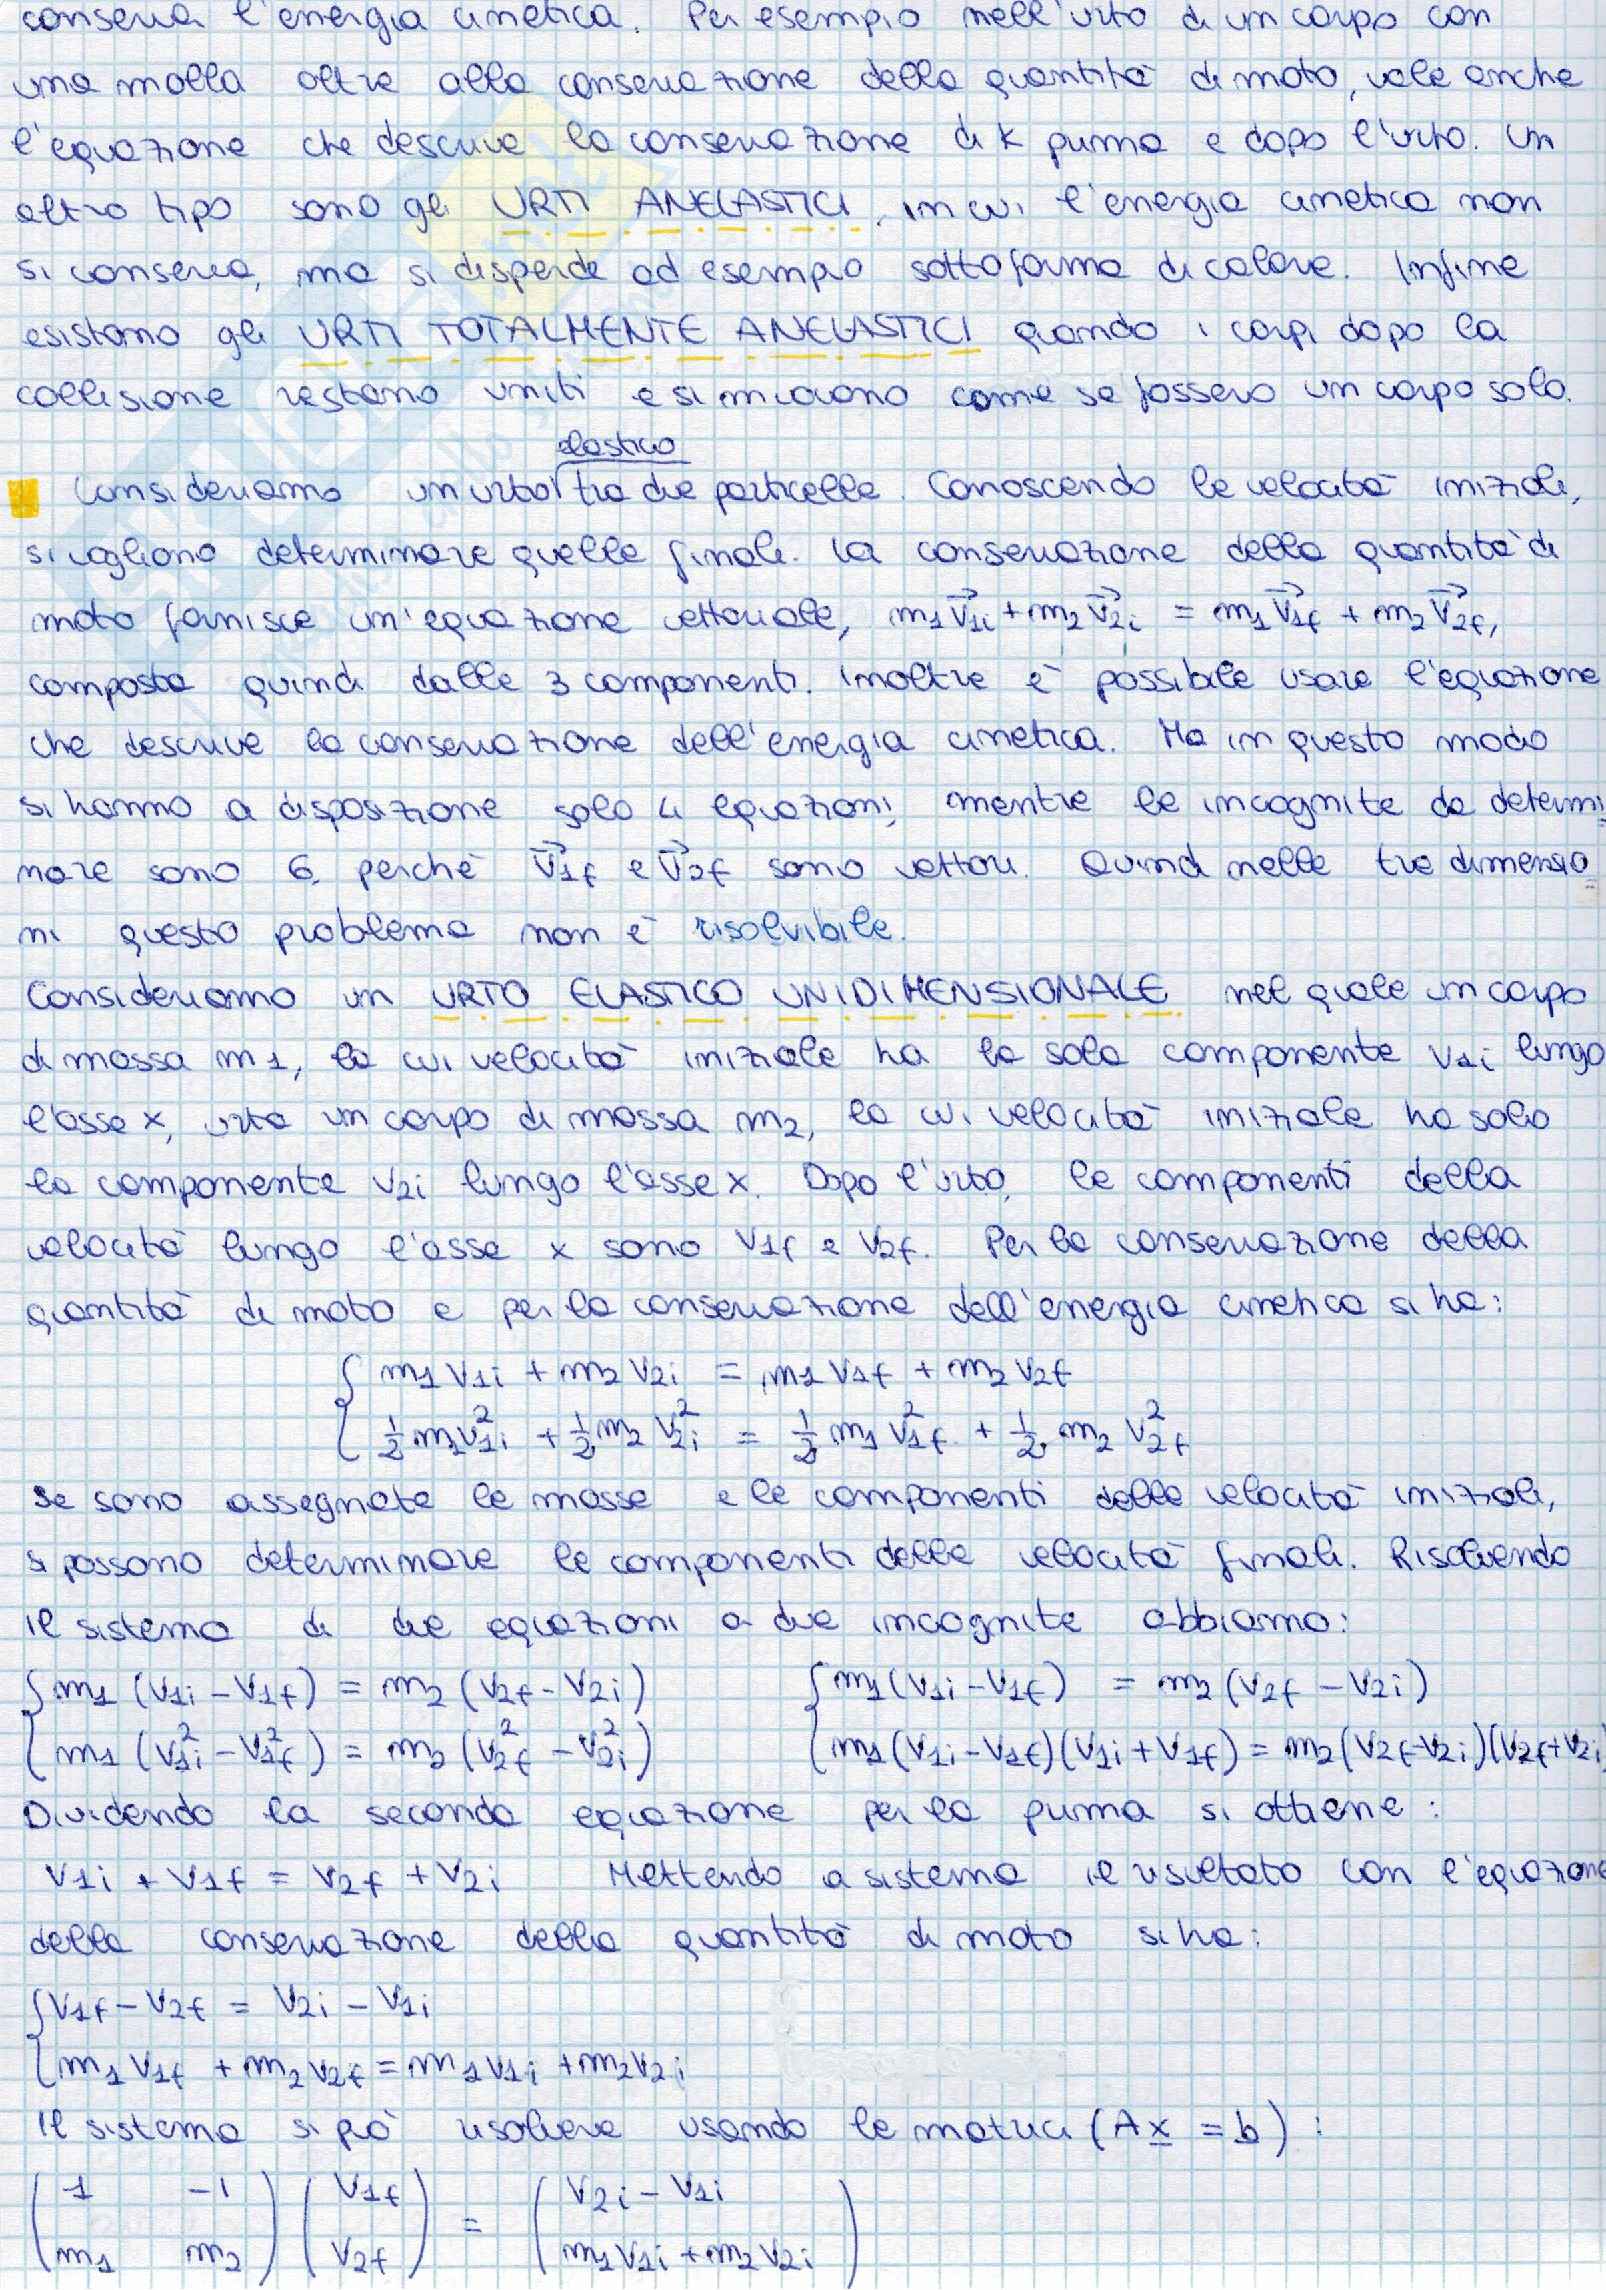 conserva l'energia cinetica. Per esempio nell'urto di un corpo con
una molla oltre alla conservazione della quantità di moto, vale anche
l'equazione che descrive la conservazione di K prima e dopo l'urto. Un
altro tipo sono gli URTI ANELASTICI, in cui l'energia cinetica non
si conserva, ma si disperde ad esempio sottoforma di calore. Infine
esistono gli URTI TOTALMENTE ANELASTICI quando i corpi dopo la
collisione restano uniti e si muovono come se fossero un corpo solo.
elastico
Consideriamo un urto tra due particelle. Conoscendo le velocità iniziali,
si vogliono determinare quelle finali. La conservazione della quantità di
moto fornisce un'equazione vettoriale, m1 v⃗1i + m2 v⃗2i = m1 v⃗1f + m2 v⃗2f,
composta quindi dalle 3 componenti. Inoltre è possibile usare l'equazione
che descrive la conservazione dell'energia cinetica. Ma in questo modo
si hanno a disposizione solo 4 equazioni, mentre le incognite da determi
nare sono 6, perché v⃗1f e v⃗2f sono vettori. Quindi nelle tre dimensio
ni questo problema non è risolvibile.
Consideriamo un URTO ELASTICO UNIDIMENSIONALE nel quale un corpo
di massa m1, la cui velocità iniziale ha la sola componente v1i lungo
l'asse x, urta un corpo di massa m2, la cui velocità iniziale ha solo
la componente v2i lungo l'asse x. Dopo l'urto, le componenti della
velocità lungo l'asse x sono v1f e v2f. Per la conservazione della
quantità di moto e per la conservazione dell'energia cinetica si ha:
{ m1 v1i + m2 v2i = m1 v1f + m2 v2f
{ 1/2 m1 v1i² + 1/2 m2 v2i² = 1/2 m1 v1f² + 1/2 m2 v2f²
Se sono assegnate le masse e le componenti delle velocità iniziali,
si possono determinare le componenti delle velocità finali. Risolvendo
il sistema di due equazioni a due incognite abbiamo:
{ m1 (v1i - v1f) = m2 (v2f - v2i) { m1 (v1i - v1f) = m2 (v2f - v2i)
{ m1 (v1i² - v1f²) = m2 (v2f² - v2i²) { m1 (v1i - v1f)(v1i + v1f) = m2 (v2f - v2i)(v2f + v2i
Dividendo la seconda equazione per la prima si ottiene:
v1i + v1f = v2f + v2i Mettendo a sistema il risultato con l'equazione
della conservazione della quantità di moto si ha:
{ v1f - v2f = v2i - v1i
{ m1 v1f + m2 v2f = m1 v1i + m2 v2i
Il sistema si può risolvere usando le matrici (Ax = b):
( 1 -1 ) ( v1f ) = ( v2i - v1i )
( m1 m2 ) ( v2f ) ( m1 v1i + m2 v2i )